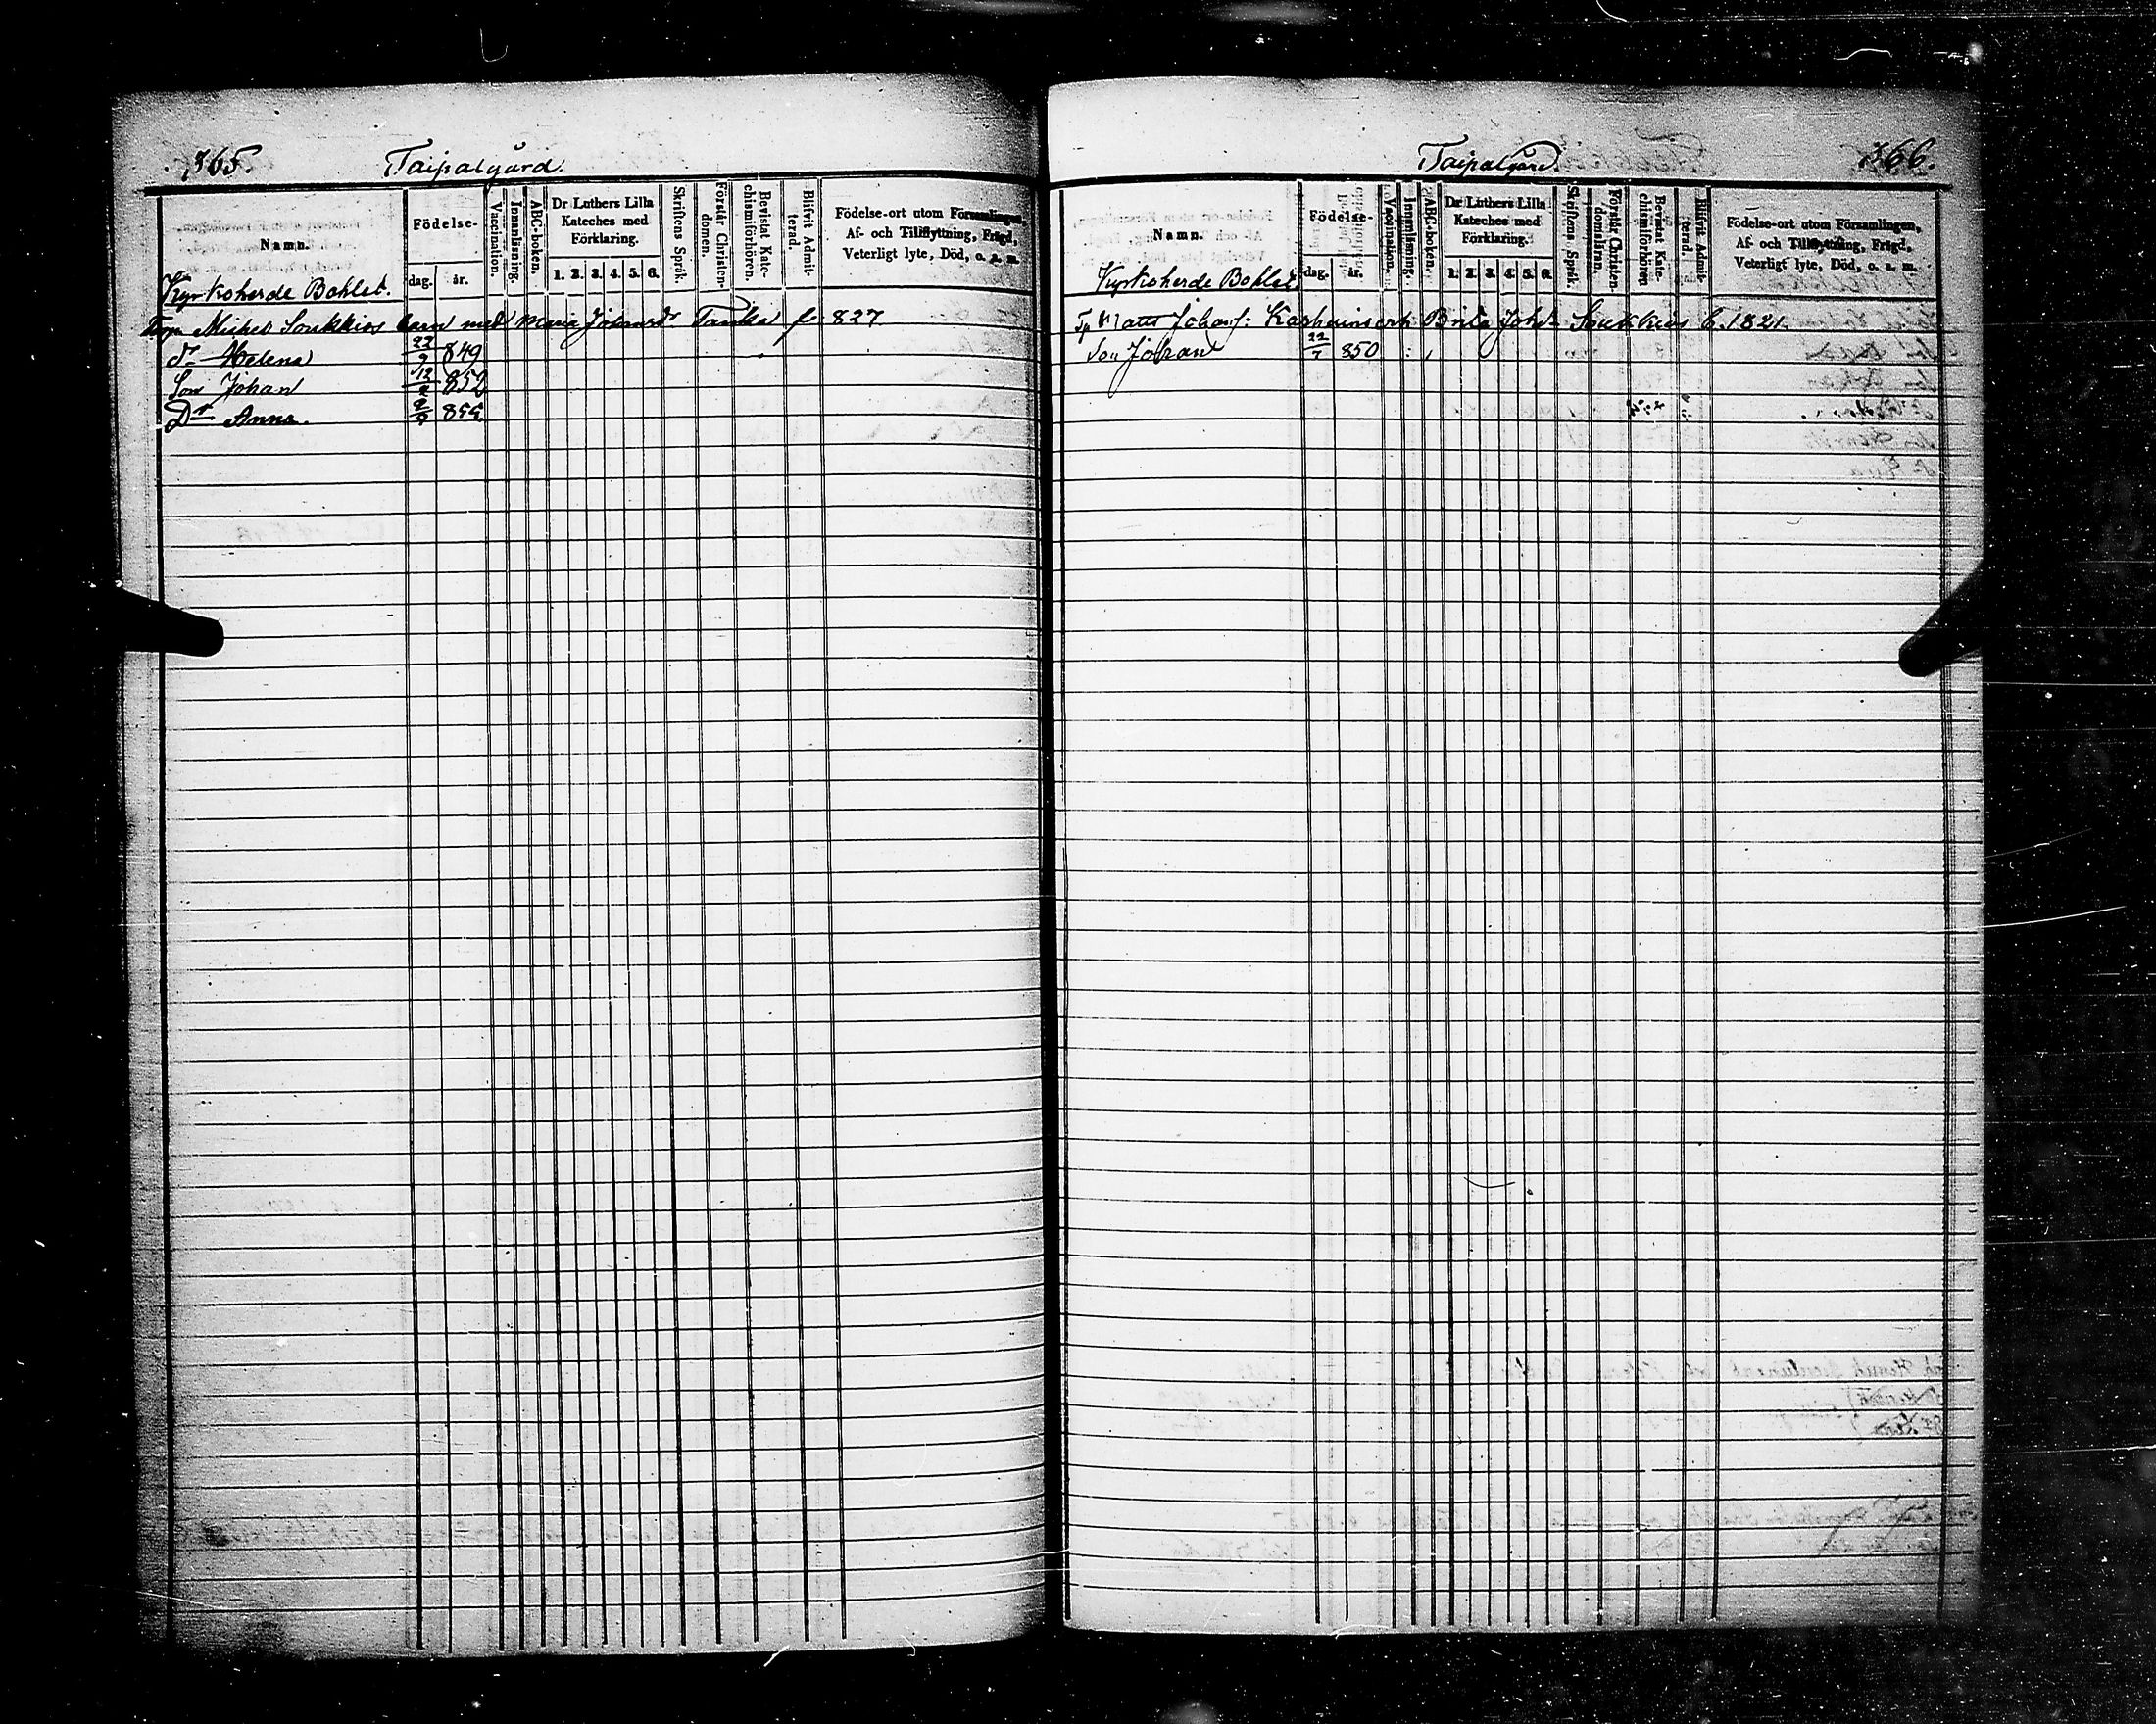 365.
Taipalgård.
Namn.
Födelse-
dag. år.
Vaccination.
Innanläsning.
ABC-boken.
Dr Luthers Lilla Kateches med Förklaring.
1. 2. 3. 4. 5. 6.
Skriftens Språk.
Förstår Christendomen.
Bevistat Katechismiförhören.
Blifvit Admitterad.
Födelse-ort utom Församlingen,
Af- och Tillflyttning, Frägd,
Veterligt lyte, Död, o. s. m.
Kyrkoherde Bohlet.
Michel Soukkios barn med Maria Johansdr Tanska f 827
dr Helena 22/9 849
Son Johan 12/ 852
Dr Anna. 2/9 855.
366.
Taipalgård.
Namn.
Födelse-
dag. år.
Vaccination.
Innanläsning.
ABC-boken.
Dr Luthers Lilla
Kateches med
Förklaring.
1. 2. 3. 4. 5. 6.
Skriftens Språk.
Förstår Christendomsläran.
Bevistat Katechismiförhören
Blifvit Admitterad.
Födelse-ort utom Församlingen,
Af- och Tillflyttning, Frägd,
Veterligt lyte, Död, o. s. m.
Kyrkoherde Bohlet.
Matts Johansf: Brita Johd. Soukkios f. 1821.
Son Johan 22/7 850